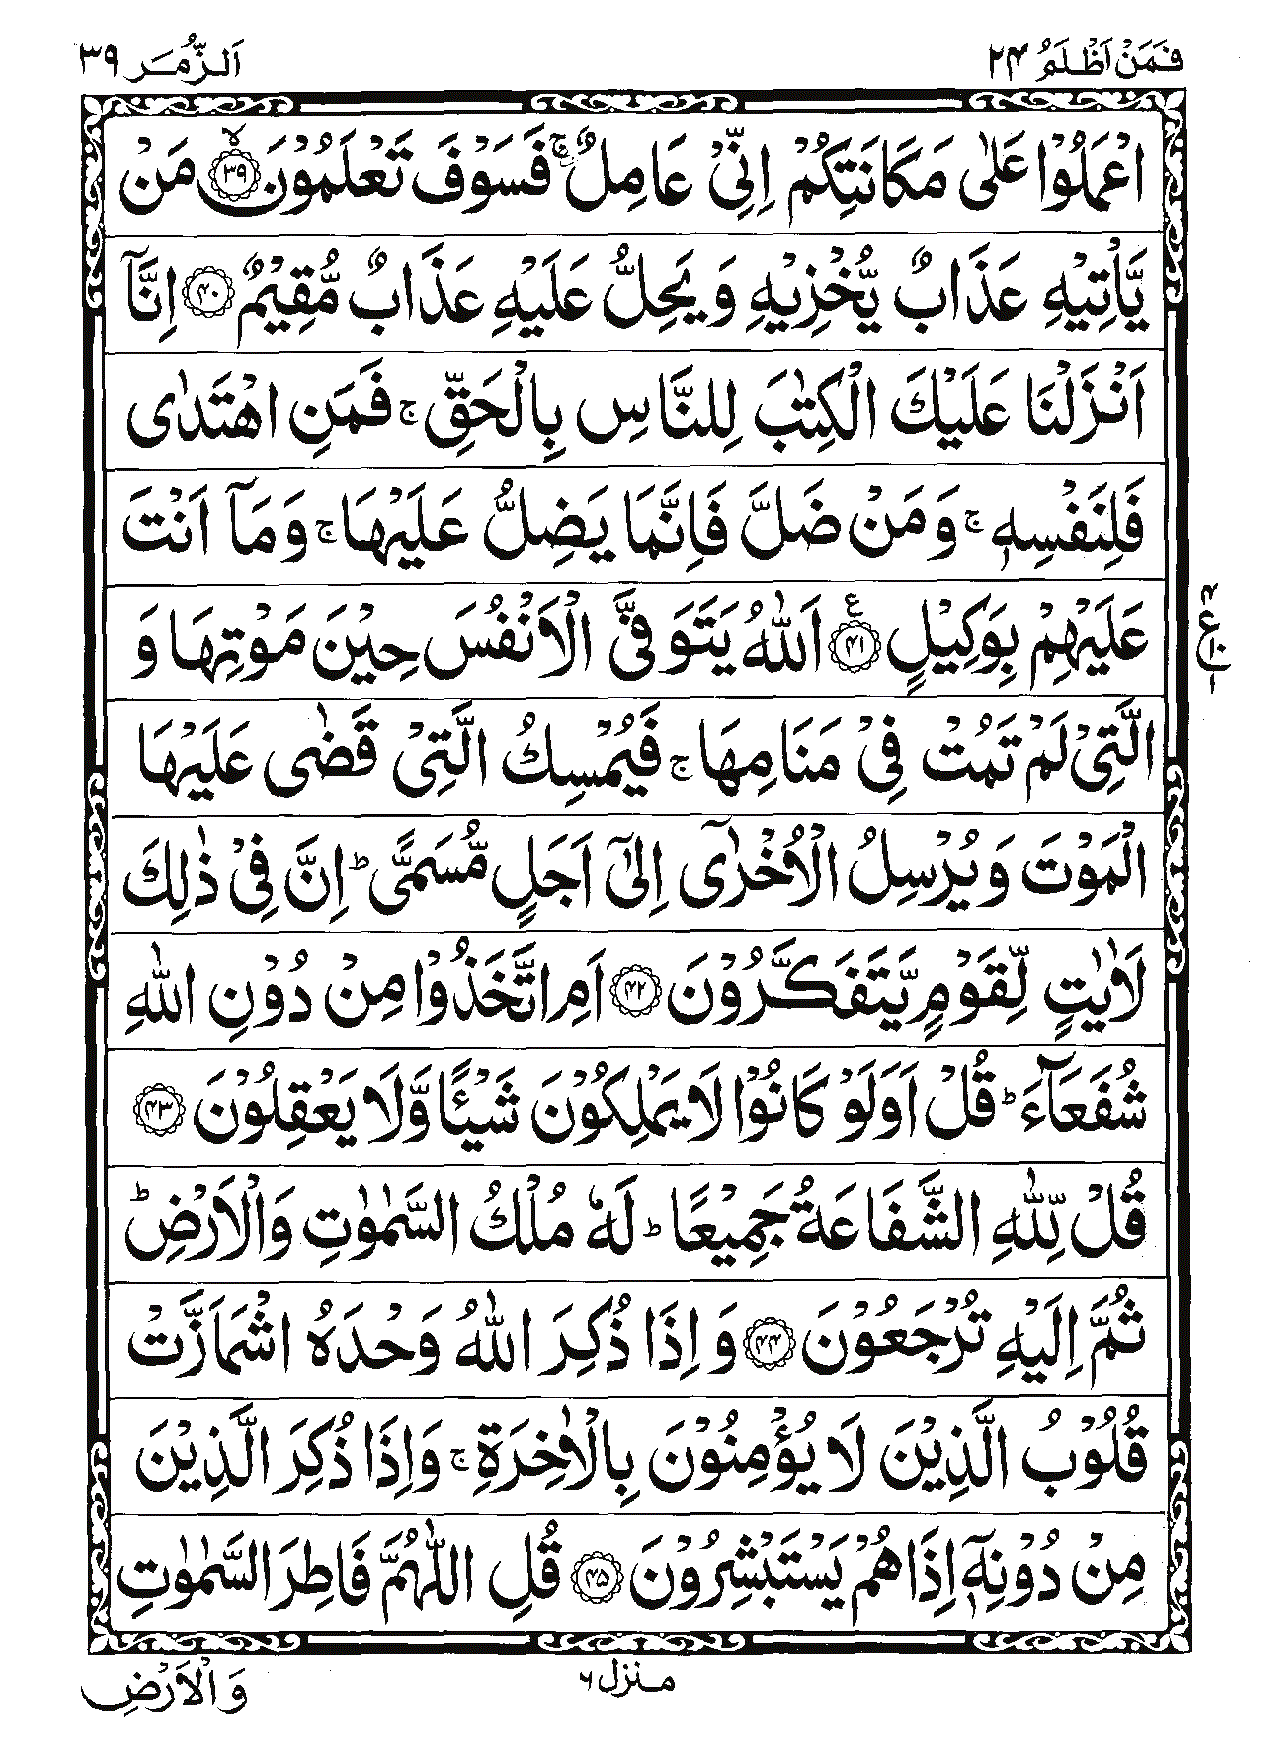 فَمَنْ اَظْلَمُ ۲۴
اَلزُّمَر ۳۹
اعْمَلُوْا عَلٰى مَكَانَتِكُمْ اِنِّیْ عَامِلٌ ۚ فَسَوْفَ تَعْلَمُوْنَ ۙ﴿۳۹﴾ مَنْ
یَّاْتِیْهِ عَذَابٌ یُّخْزِیْهِ وَ یَحِلُّ عَلَیْهِ عَذَابٌ مُّقِیْمٌ ﴿۴۰﴾ اِنَّاۤ
اَنْزَلْنَا عَلَیْكَ الْكِتٰبَ لِلنَّاسِ بِالْحَقِّ ۚ فَمَنِ اهْتَدٰى
فَلِنَفْسِهٖ ۚ وَ مَنْ ضَلَّ فَاِنَّمَا یَضِلُّ عَلَیْهَا ۚ وَ مَاۤ اَنْتَ
عَلَیْهِمْ بِوَكِیْلٍ ﴿۴۱﴾ ع اَللّٰهُ یَتَوَفَّى الْاَنْفُسَ حِیْنَ مَوْتِهَا وَ
الَّتِیْ لَمْ تَمُتْ فِیْ مَنَامِهَا ۚ فَیُمْسِكُ الَّتِیْ قَضٰى عَلَیْهَا
الْمَوْتَ وَ یُرْسِلُ الْاُخْرٰۤى اِلٰۤى اَجَلٍ مُّسَمًّى ؕ اِنَّ فِیْ ذٰلِكَ
لَاٰیٰتٍ لِّقَوْمٍ یَّتَفَكَّرُوْنَ ﴿۴۲﴾ اَمِ اتَّخَذُوْا مِنْ دُوْنِ اللّٰهِ
شُفَعَآءَ ؕ قُلْ اَوَلَوْ كَانُوْا لَا یَمْلِكُوْنَ شَیْـًٔا وَّ لَا یَعْقِلُوْنَ ﴿۴۳﴾
قُلْ لِّلّٰهِ الشَّفَاعَةُ جَمِیْعًا ؕ لَهٗ مُلْكُ السَّمٰوٰتِ وَ الْاَرْضِ ؕ
ثُمَّ اِلَیْهِ تُرْجَعُوْنَ ﴿۴۴﴾ وَ اِذَا ذُكِرَ اللّٰهُ وَحْدَهُ اشْمَاَزَّتْ
قُلُوْبُ الَّذِیْنَ لَا یُؤْمِنُوْنَ بِالْاٰخِرَةِ ۚ وَ اِذَا ذُكِرَ الَّذِیْنَ
مِنْ دُوْنِهٖۤ اِذَا هُمْ یَسْتَبْشِرُوْنَ ﴿۴۵﴾ قُلِ اللّٰهُمَّ فَاطِرَ السَّمٰوٰتِ
۴
ع
۱۰
۱
منزل ۶
وَ الْاَرْضِ